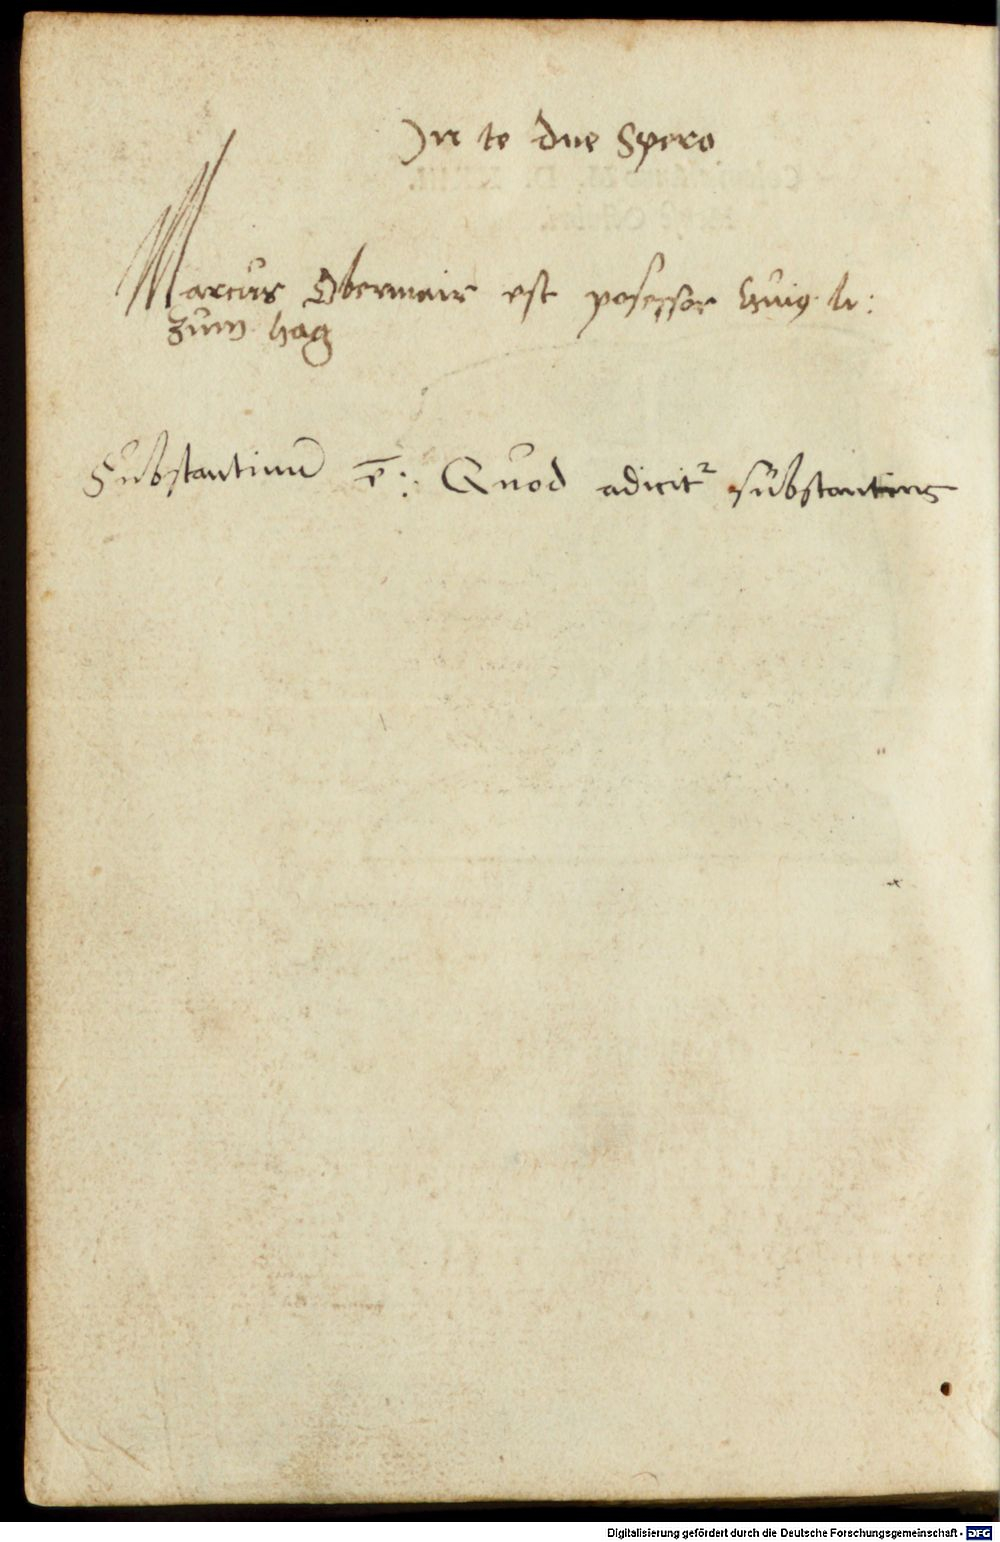 In te dne Spero
Marcus Obermair est posessor huig li:
zum hag
Substantinu ē: Quod adicit² substantius
Digitalisierung gefördert durch die Deutsche Forschungsgemeinschaft - DFG